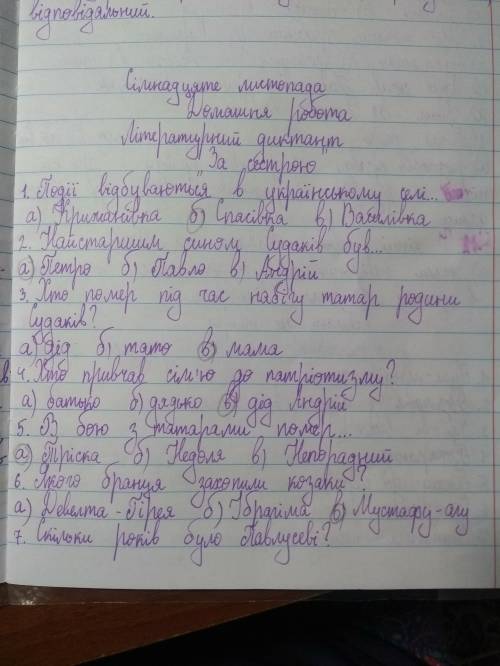 відповідальний.
Сімнадцяте листопада
Домашня робота
Літературний диктант
"За сестрою"
1. Події відбуваються в українському селі...
а) Крижанівка б) Спасівка в) Василівка
2. Найстаршим сином Судаків був...
а) Петро б) Павло в) Андрій
3. Хто помер під час набігу татар родини
Судаків?
а) дід б) тато в) мама
4. Хто привчав сім'ю до патріотизму?
а) батько б) дядько в) дід Андрій
5. В бою з татарами помер...
а) Тріска б) Недоля в) Непорадний
6. Якого бранця захопили козаки?
а) Девлета-Гірея б) Ібрагіма в) Мустафу-агу
7. Скільки років було Павлусеві?